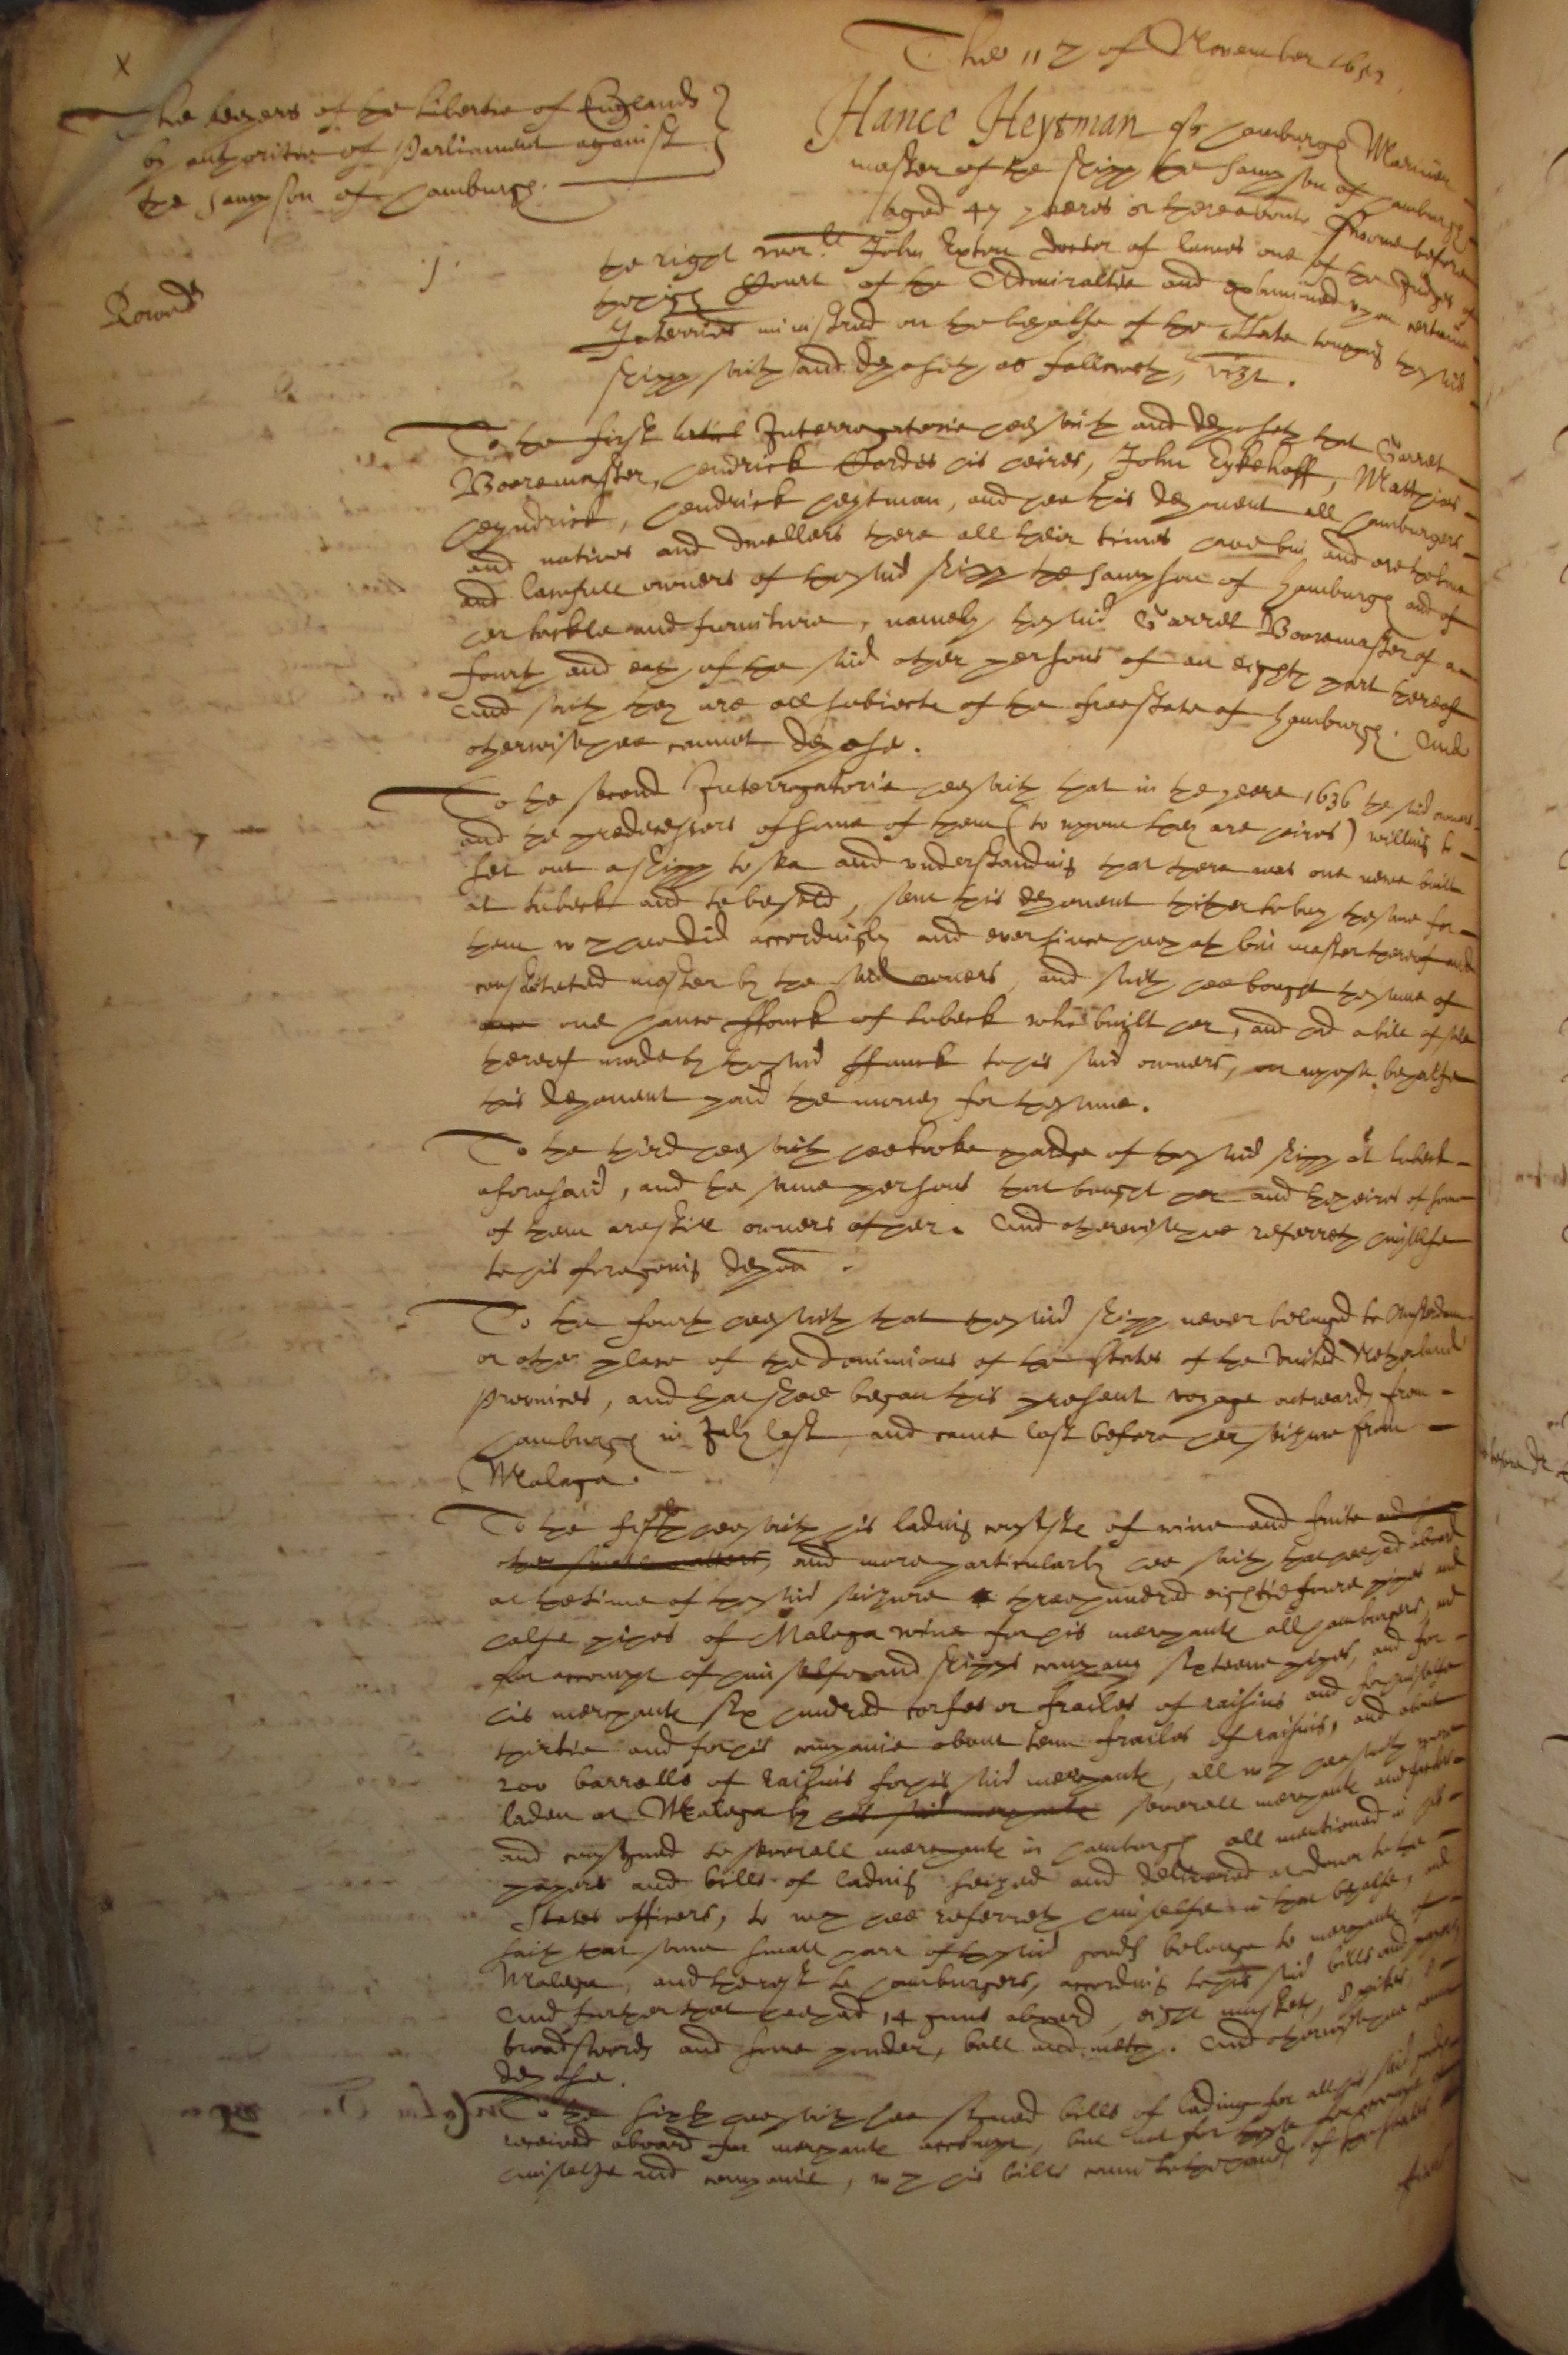 The 11th of November 1652
The keepers of the libertie of England
by authoritie of Parliament against
the Sampson of hamburgh.
Rowe
.j.
Hance Heysman of hamburgh Mariner
master of the shipp the Sampson of hamburgh
aged 47 yeeres or thereabouts sworne before
the right worll. John Exton doctor of lawes one of the Judges of
the high Court of the Admiraltie and examined upon certaine
Interries ministred on the behalfe of the State touching the said
shipp saith and deposeth as followeth, vizt.
To the first Interrogatorie hee saith and deposeth that Garret
Booremaster, hendrick Cordes his heires, John Eykehoff, Matthias
heyndrick, hendrick heysman, and hee this deponent all hamburgers
and natives and dwellers there all their times have bin and are the true
and lawfull owners of the said shipp the Sampson of hamburgh and of
her tackle and furniture, namely the said Garret Booremaster of a
fourth and each of the said other persons of an eighth part thereof
And saith they are all subiects of the free state of hamburgh. And
otherwise hee cannot depose.
To the second Interrogatorie hee saith that in the yeere 1636 the said owners
and the predecessors of some of them (to whome they are heires) willing to
set out a shipp to sea and understanding that there was one newe built
at Lubeck and to be sold, sent this deponent thither to buy the same for
them wch hee did accordingly and ever since hee hath bin master thereof and
constituted master by the said owners, and saith hee bought the same of
one hance ffonck of Lubeck who built her, and had a bill of sale
thereof made by the said ffonck to his said owners, on whose behalfe
this deponent paid the money for the same.
To the third hee saith hee tooke possession of the said shipp at Lubeck
aforesaid, and the same persons that bought her and the heires of some
of them are still owners of her. And otherwise hee referreth himselfe
to his foregoing depon.
To the fourth hee saith that the said shipp never belonged to Amsterdam
or other place of the dominions of the States of the United Netherland
Provinces, and that shee began this present voyage outwards from
hamburgh in July last and came last before her seizure from
Malaga.
To the fifth hee saith his lading consists of wine and fruite and
other small matters, and more particularly hee saith that hee had aboard
at the time of the said seizure three hundred eightie foure pipes and
halfe pipes of Malaga wine for his merchants all hamburgers, and
for accompt of himselfe and shipps company sixteene pipes, and for
his merchants six hundred corfes or frailes of raisins and for himselfe
thirtie and for his companie about tenn frailes of raisins, and about
200 barrells of raisins for his said merchants, all wch hee saith were
laden at Malaga by his said merchants severall merchants and factors
and consigned to severall merchants in hamburgh all mentioned in his
papers and bills of lading seized and delivered to the
States officers, to wch hee referreth himselfe in that behalfe, and
saith that some small part of the said goods belonge to merchants of
Malaga, and the rest to hamburgers, according to his said bills and papers
And further that hee had 14 guns aboard, eight muskets, 8 pikes,
broadswords and some powder, ball and match. And otherwise hee cannot
depose.
To the sixth hee saith hee signed bills of lading for all his said goods
received aboard for merchants accompt, but not for those for accompt of
himselfe and companie, wch his bills came to the hands of the States